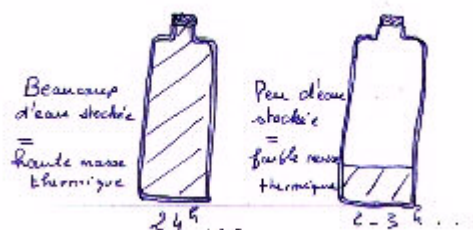 Beaucoup
d'eau stockée
=
haute masse
thermique
24h ...
Peu d'eau
stockée
=
faible masse
thermique
2-3h ...